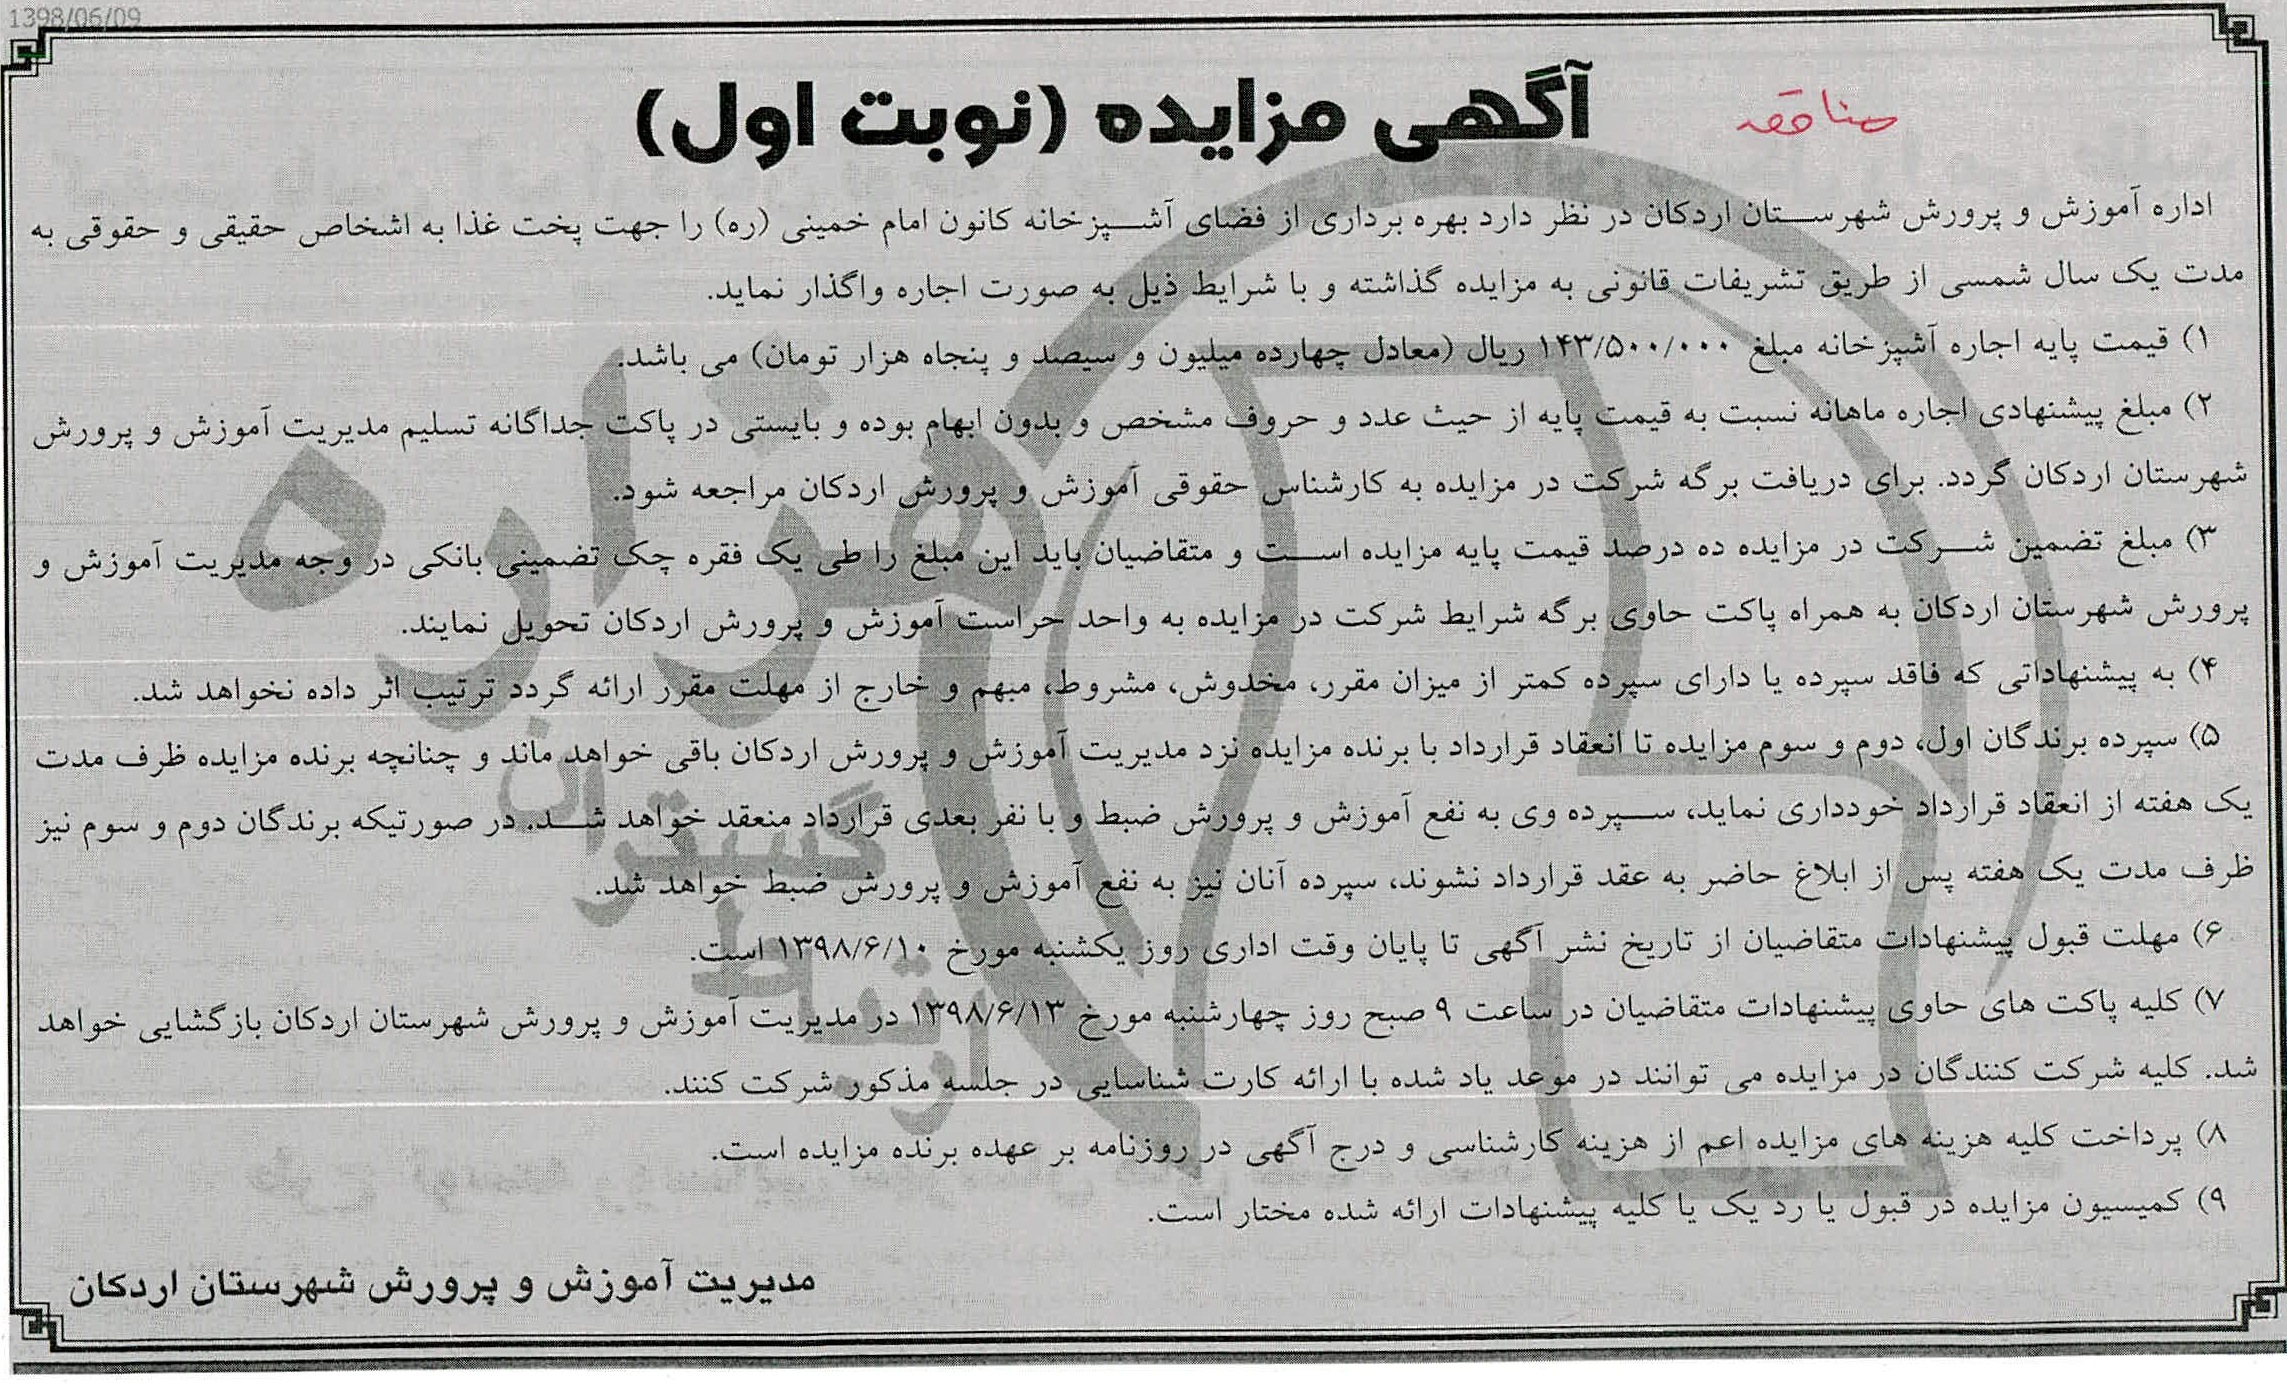 1398/06/09
آگهی مزایده (نوبت اول)
مناقصه
اداره آموزش و پرورش شهرستان اردکان در نظر دارد بهره برداری از فضای آشپزخانه کانون امام خمینی (ره) را جهت پخت غذا به اشخاص حقیقی و حقوقی به
مدت یک سال شمسی از طریق تشریفات قانونی به مزایده گذاشته و با شرایط ذیل به صورت اجاره واگذار نماید.
۱) قیمت پایه اجاره آشپزخانه مبلغ ۱۴۳/۵۰۰/۰۰۰ ریال (معادل چهارده میلیون و سیصد و پنجاه هزار تومان) می باشد.
۲) مبلغ پیشنهادی اجاره ماهانه نسبت به قیمت پایه از حیث عدد و حروف مشخص و بدون ابهام بوده و بایستی در پاکت جداگانه تسلیم مدیریت آموزش و پرورش
شهرستان اردکان گردد. برای دریافت برگه شرکت در مزایده به کارشناس حقوقی آموزش و پرورش اردکان مراجعه شود.
۳) مبلغ تضمین شرکت در مزایده ده درصد قیمت پایه مزایده است و متقاضیان باید این مبلغ را طی یک فقره چک تضمینی بانکی در وجه مدیریت آموزش و
پرورش شهرستان اردکان به همراه پاکت حاوی برگه شرایط شرکت در مزایده به واحد حراست آموزش و پرورش اردکان تحویل نمایند.
۴) به پیشنهاداتی که فاقد سپرده یا دارای سپرده کمتر از میزان مقرر، مخدوش، مشروط، مبهم و خارج از مهلت مقرر ارائه گردد ترتیب اثر داده نخواهد شد.
۵) سپرده برندگان اول، دوم و سوم مزایده تا انعقاد قرارداد با برنده مزایده نزد مدیریت آموزش و پرورش اردکان باقی خواهد ماند و چنانچه برنده مزایده ظرف مدت
یک هفته از انعقاد قرارداد خودداری نماید، سپرده وی به نفع آموزش و پرورش ضبط و با نفر بعدی قرارداد منعقد خواهد شد. در صورتیکه برندگان دوم و سوم نیز
ظرف مدت یک هفته پس از ابلاغ حاضر به عقد قرارداد نشوند، سپرده آنان نیز به نفع آموزش و پرورش ضبط خواهد شد.
۶) مهلت قبول پیشنهادات متقاضیان از تاریخ نشر آگهی تا پایان وقت اداری روز یکشنبه مورخ ۱۳۹۸/۶/۱۰ است.
۷) کلیه پاکت های حاوی پیشنهادات متقاضیان در ساعت ۹ صبح روز چهارشنبه مورخ ۱۳۹۸/۶/۱۳ در مدیریت آموزش و پرورش شهرستان اردکان بازگشایی خواهد
شد. کلیه شرکت کنندگان در مزایده می توانند در موعد یاد شده با ارائه کارت شناسایی در جلسه مذکور شرکت کنند.
۸) پرداخت کلیه هزینه های مزایده اعم از هزینه کارشناسی و درج آگهی در روزنامه بر عهده برنده مزایده است.
۹) کمیسیون مزایده در قبول یا رد یک یا کلیه پیشنهادات ارائه شده مختار است.
مدیریت آموزش و پرورش شهرستان اردکان
هزاره
گستران
ارتباط